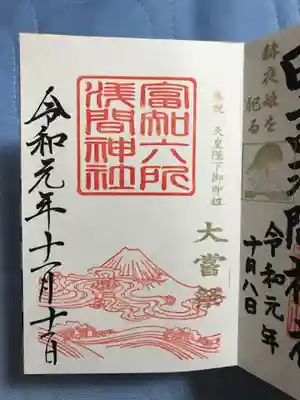 赫夜姫を
祀る
令和元年
十月八日
奉祝 天皇陛下御即位
大嘗祭
富知六所
浅間神社
令和元年十一月十一日